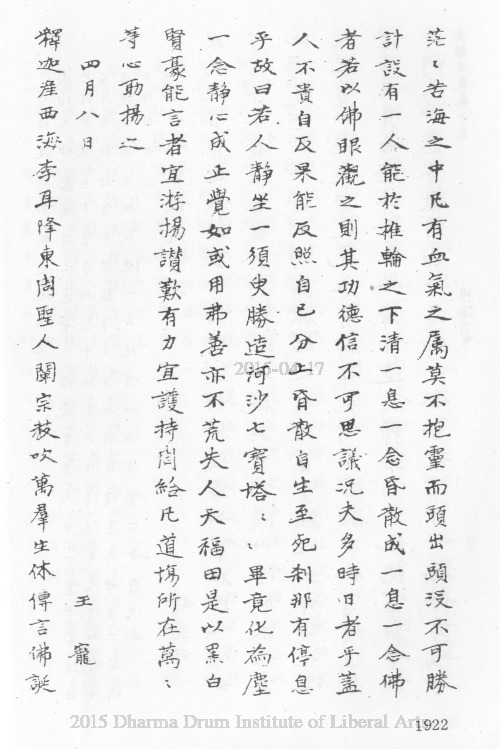 茫〻苦海之中凡有血氣之屬莫不抱靈而頭出頭沒不可勝
計設有一人能於椎輪之下清一息一念昏散成一息一念佛
者若以佛眼觀之則其功德信不可思議況夫多時日者乎蓋
人不貴自反果能反照自己分上昏散自生至死剎那有停息
乎故曰若人靜坐一須臾勝造河沙七寶塔〻〻畢竟化為塵
一念靜心成正覺如或用弗善亦不荒失人天福田是以黑白
賢豪能言者宜游揚讚歎有力宜護持周給凡道場所在萬〻
莩心毋揚之
四月八日 王 寵
釋迦產西海李耳降東周聖人闡宗教吹萬羣生体傳言佛誕
2015-04-17
2015 Dharma Drum Institute of Liberal Arts
1922